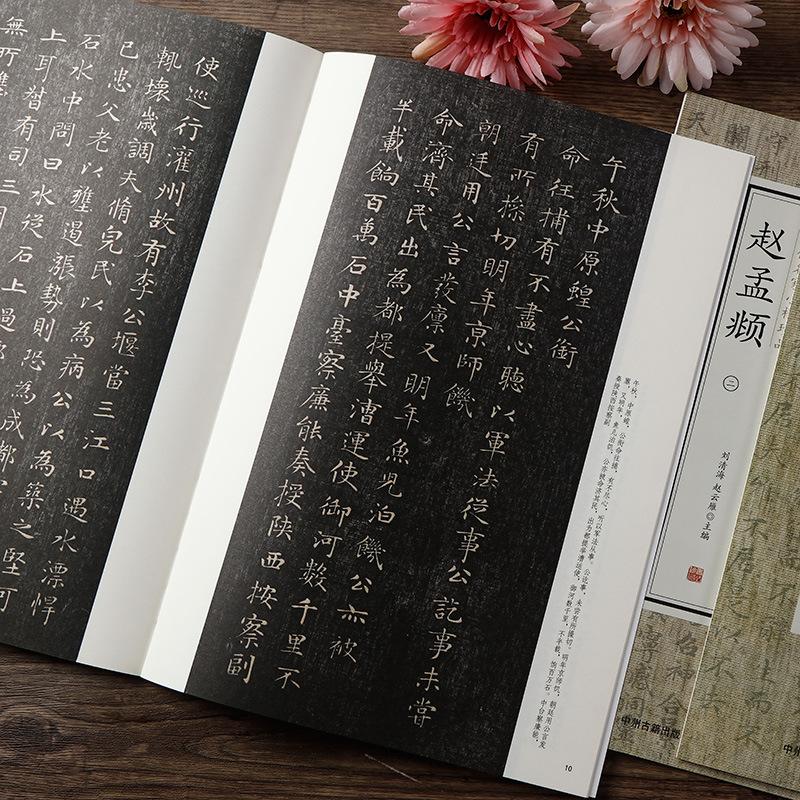 午秋中原蝗公銜
命往捕有不盡心聽以軍法從事公訖事未嘗
有所操切明年京師饑
朝廷用公言發廩又明年魚兒泊饑公亦被
命濟其民出為都提舉漕運使御河數千里不
半載餉百萬石中臺察廉能奏授陝西按察副
午秋，中原蝗，公衔命往捕，有不尽心，听以军法从事。公讫事，未尝有所操切。明年京师饥，朝廷用公言发
廪。又明年，鱼儿泊饥，公亦被命济其民。出为都提举漕运使，御河数千里，不半载，饷百万石。中台察廉能，
奏授陕西按察副
10
使巡行灌州故有李公堰當三江口遇水漂悍
輒壞歲調夫脩完民以為病公以為築之堅可
已忠父老以壅遏漲勢則恐為成都
石水中問曰水從石上過
上耳督有司三
無所壅
赵孟頫
二
刘清海 赵云雁◎主编
中州古籍出版
中州